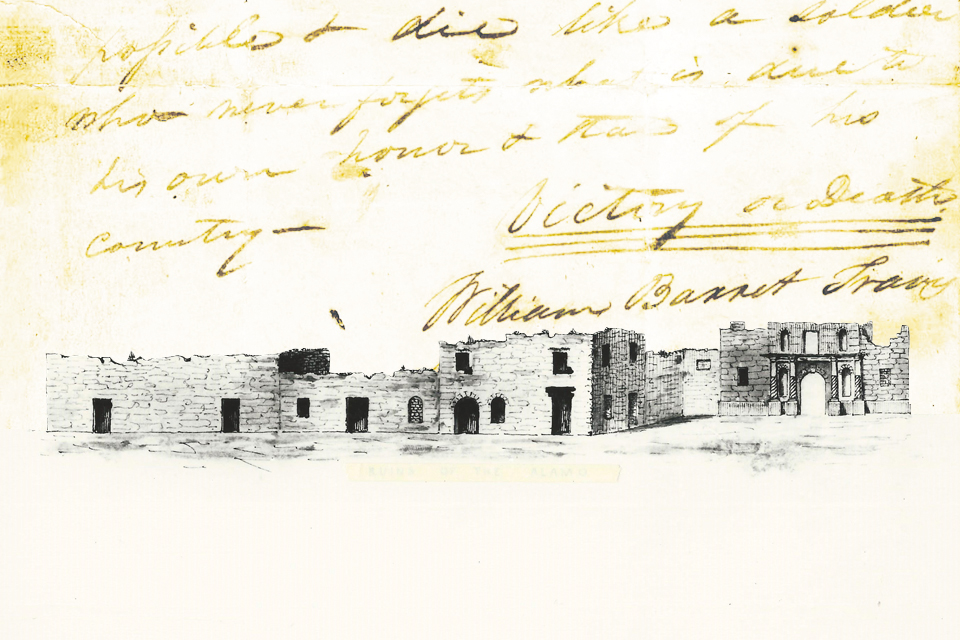 possible & die like a soldier
who never forgets what is due to
his own honor & that of his
country —
Victory or Death
William Barret Travis
RUINS OF THE ALAMO